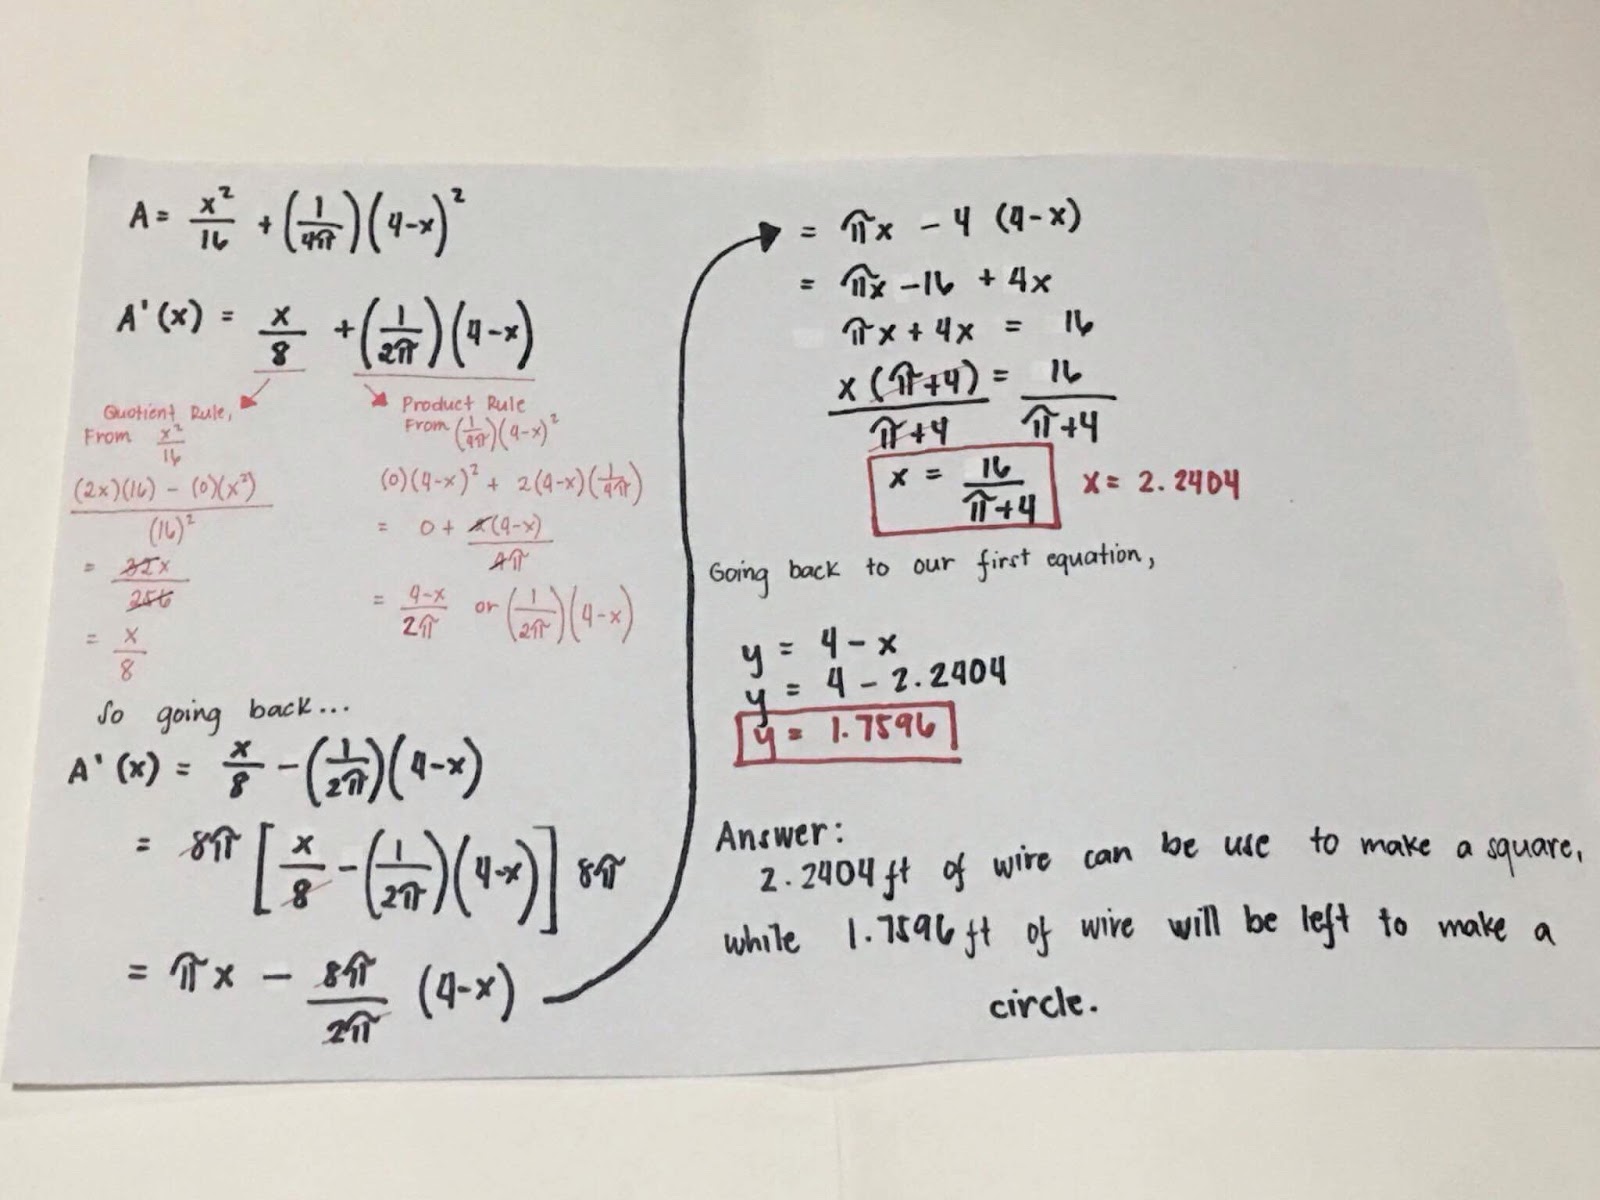 A = x²/16 + (1/4π)(4-x)²
A'(x) = x/8 + (1/2π)(4-x)
Quotient Rule,
From x²/16
(2x)(16) - (0)(x²) / (16)²
= 32x/256
= x/8
Product Rule
From (1/4π)(4-x)²
(0)(4-x)² + 2(4-x)(1/4π)
= 0 + 2(4-x)/4π
= 4-x/2π or (1/2π)(4-x)
So going back...
A'(x) = x/8 - (1/2π)(4-x)
= 8π [x/8 - (1/2π)(4-x)] 8π
= πx - 8π/2π (4-x)
= πx - 4 (4-x)
= πx - 16 + 4x
πx + 4x = 16
x(π+4)/π+4 = 16/π+4
x = 16/π+4 x = 2.2404
Going back to our first equation,
y = 4 - x
y = 4 - 2.2404
y = 1.7596
Answer:
2.2404 ft of wire can be use to make a square,
while 1.7596 ft of wire will be left to make a
circle.